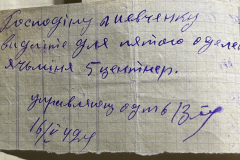 Господину Шевченку
видайте для пятого отделе
ячьміня 5 центнер.
управляющ
16/V 42 г